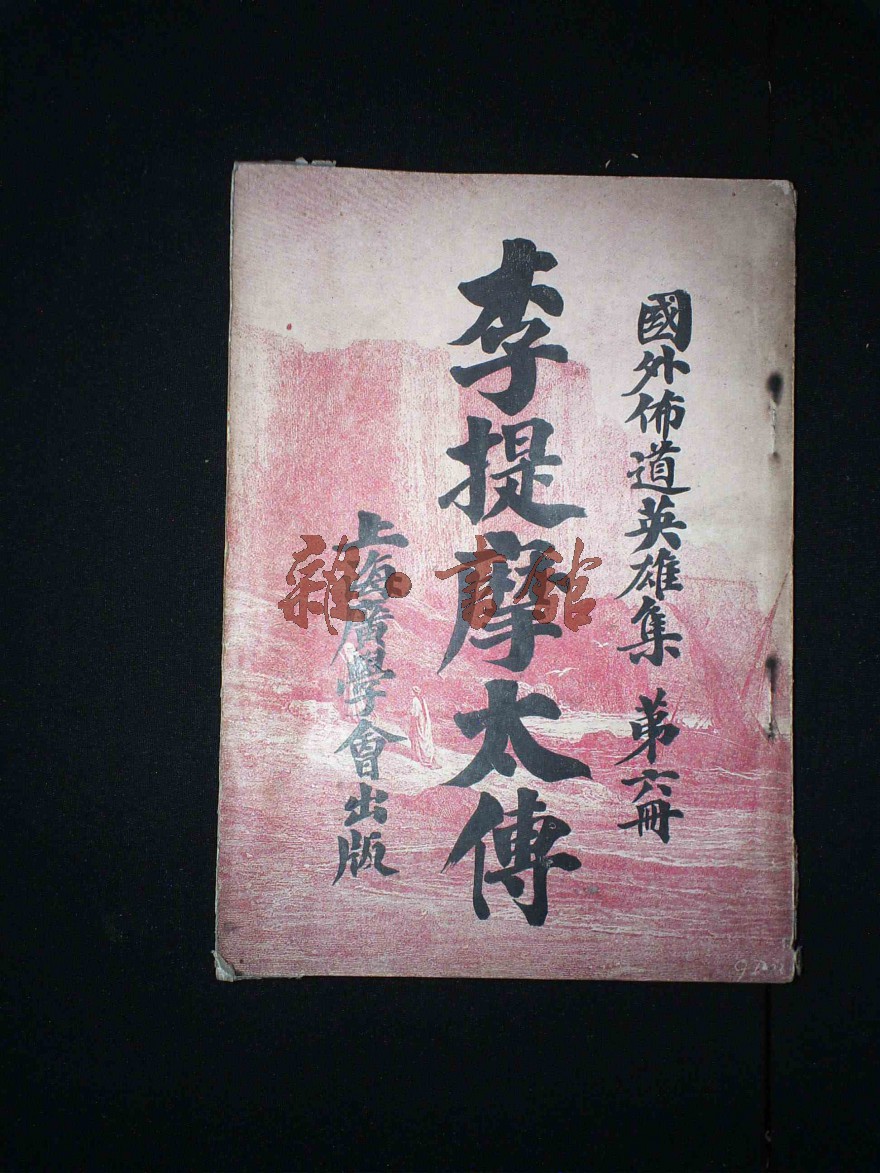 國外佈道英雄集 第六冊
李提摩太傳
上海廣學會出版
雜·書館